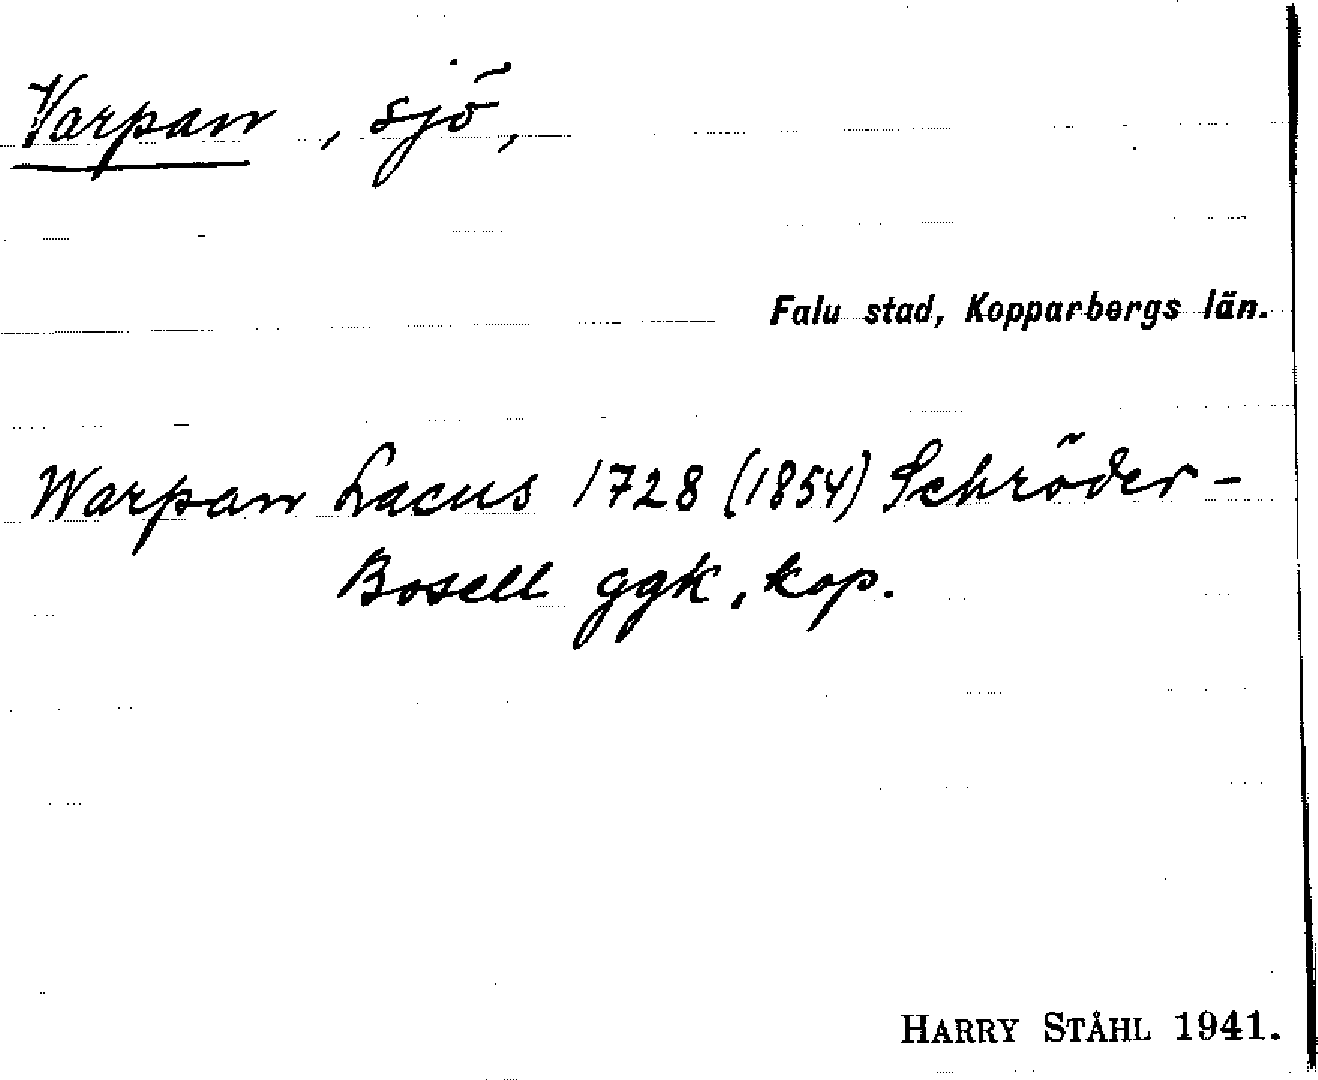 Varpan, sjö,
Falu stad, Kopparbergs län.
Warpan Lacus 1728 (1854) Schröder-
Bosell ggk, kop.
HARRY STÅHL 1941.